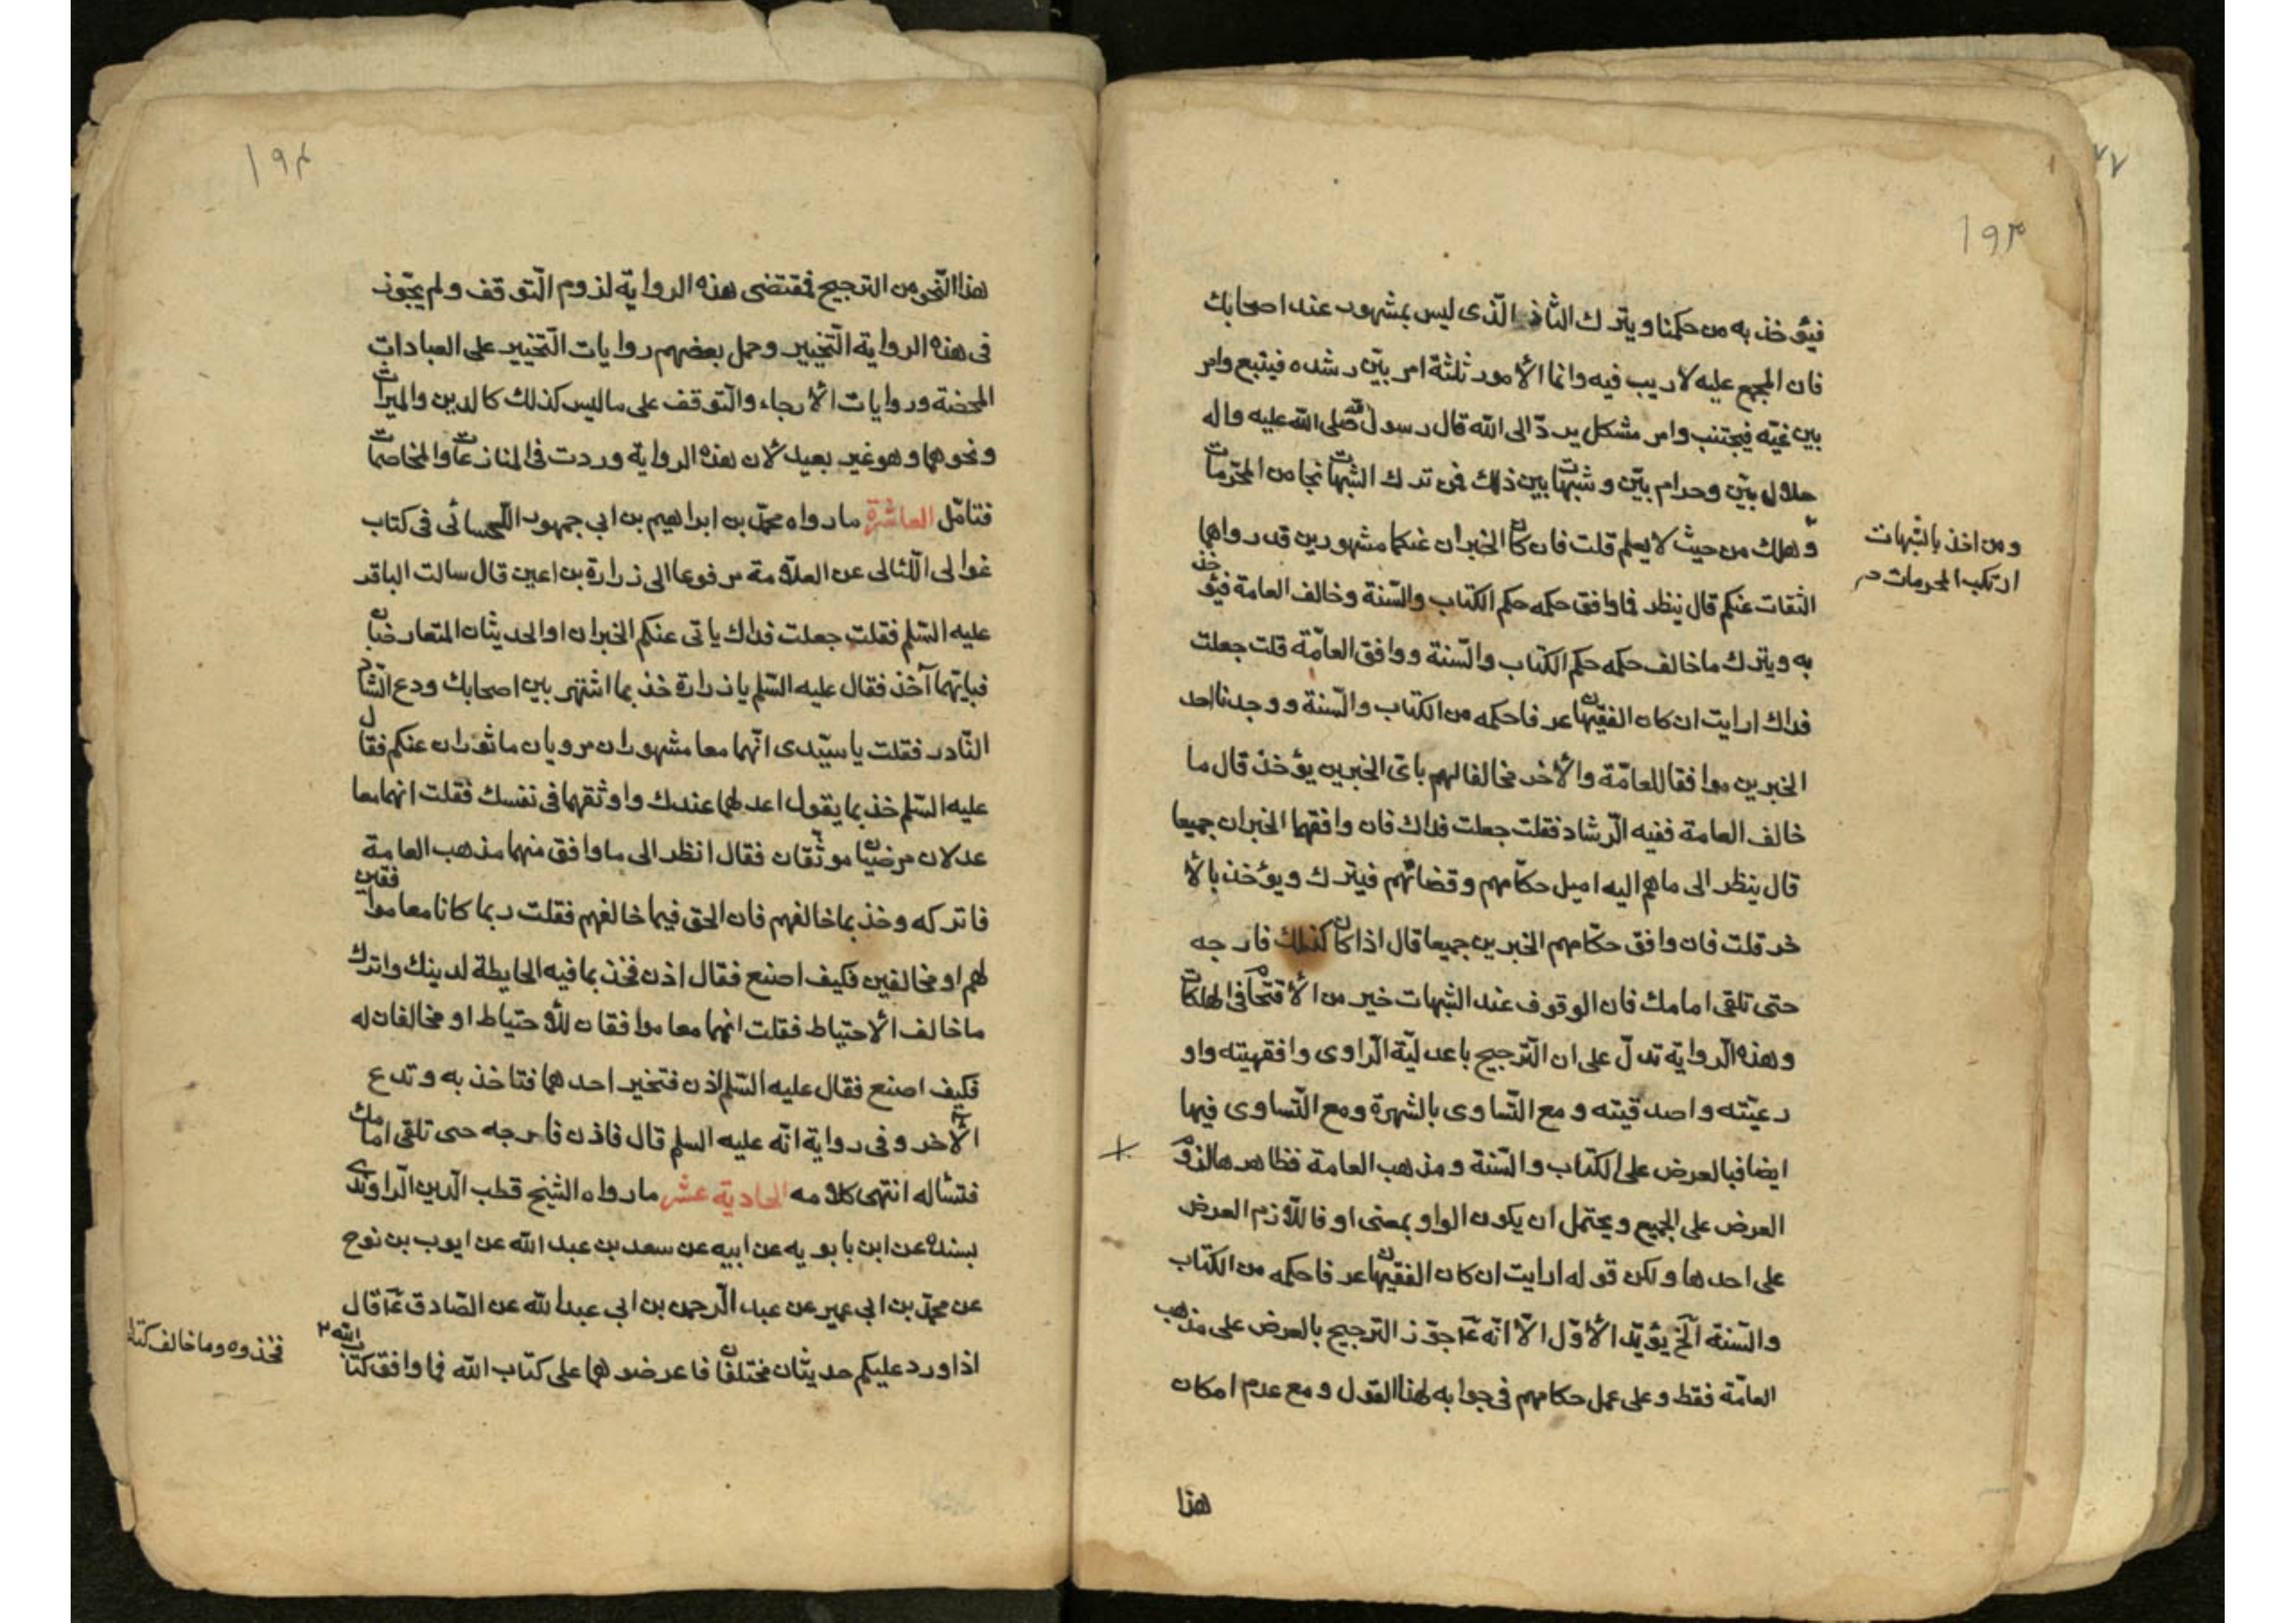 ١٩٣
فيؤخذ به من حكمنا ويترك الشاذ الّذى ليس بمشهور عند اصحابك
فان المجمع عليه لا ريب فيه وانما الأمور ثلثة امر بيّن رشده فيتبع وامر
بين غيّه فيجتنب وامر مشكل يردّ الى الله قال رسول الله صلى الله عليه واله
حلال بيّن وحرام بيّن وشبهات بين ذلك فمن ترك الشبهات نجا من المحرّمات
وهلك من حيث لا يعلم قلت فان كان الخبران عنكما مشهورين قد رواهما
ومن اخذ بالشبهات
ارتكب المحرمات
الثقات عنكم قال ينظر فما وافق حكمه حكم الكتاب والسّنة وخالف العامة فيؤخذ
به ويترك ما خالف حكمه حكم الكتاب والسّنة ووافق العامّة قلت جعلت
فداك ارايت ان كان الفقيهان عرفا حكمه من الكتاب والسّنة ووجدنا احد
الخبرين موافقا للعامّة والأخر مخالفا لهم باىّ الخبرين يؤخذ قال ما
خالف العامة ففيه الّرشاد فقلت جعلت فداك فان وافقهما الخبران جميعا
قال ينظر الى ما هم اليه اميل حكّامهم وقضاتهم فيترك ويؤخذ بالأ
خر قلت فان وافق حكّامهم الخبرين جميعا قال اذا كان كذلك فارجه
حتى تلقى امامك فان الوقوف عند الشبهات خير من الأقتحام فى الهلكات
وهذه الّرواية تدلّ على ان الّترجيح باعدليّة الّراوى وافقهيته واو
رعيّته واصدقيته ومع الّتساوى بالشهرة ومع الّتساوى فيها
ايضا فبالعرض على الكتاب والسّنة ومذهب العامة فظاهرها لزوم
العرض على الجميع ويحتمل ان يكون الواو بمعنى او فاللّازم العرض
على احدها ولكن قوله ارايت ان كان الفقيهان عرفا حكمه من الكتاب
والسّنة آلخ يؤيّد الأوّل الّا انّه عّ جوّز الترجيح بالعرض على مذهب
العامّة فقط وعلى عمل حكامهم فى جوابه لهذا القول ومع عدم امكان
هذا
١٩٤
هذا الّنحو من الترجيح فمقتضى هذه الرواية لزوم الّتوقف ولم يجّوز
فى هذه الرواية الّتخيير وحمل بعضهم روايات الّتخيير على العبادات
المحضة وروايات الأرجاء والّتوقف على ما ليس كذلك كالدين والميراث
ونحوهما وهو غير بعيد لأن هذه الرواية وردت فى المنازعات والمخاصمات
فتامّل العاشرة ما رواه محمّد بن ابراهيم بن ابي جمهور اللّحسائى فى كتاب
غوالى اللّئالى عن العلّامة مرفوعا الى زرارة بن اعين قال سالت الباقر
عليه السّلم فقلت جعلت فداك ياتى عنكم الخبران او الحديثان المتعارضان
فبايّهما آخذ فقال عليه السّلم يا زرارة خذ بما اشتهر بين اصحابك ودع الشّاذ
النّادر فقلت يا سيّدى انّهما معا مشهوران مرويان ماثوران عنكم فقال
عليه السّلم خذ بما يقول اعدلهما عندك واوثقهما فى نفسك فقلت انهما معا
عدلان مرضيّان موثّقان فقال انظر الى ما وافق منهما مذهب العامة
فاتركه وخذ بما خالفهم فان الحق فيما خالفهم فقلت ربما كانا معا موافقين
لهم او مخالفين فكيف اصنع فقال اذن فخذ بما فيه الحايطة لدينك واترك
ما خالف الأحتياط فقلت انهما معا موافقان للأحتياط او مخالفان له
فكيف اصنع فقال عليه السّلم اذن فتخير احدهما فتاخذ به وتدع
الأخر وفى رواية انّه عليه السلم قال فاذن فارجه حتى تلقى امامك
فتسٔاله انتهى كلامه الحادية عشر ما رواه الشيخ قطب الّدين الّراوندى
بسنده عن ابن بابويه عن ابيه عن سعد بن عبد الله عن ايوب بن نوح
عن محمّد بن ابي عمير عن عبد الّرحمن بن ابي عبد الله عن الصّادق عّ قال
اذا ورد عليكم حديثان مختلفان فاعرضوهما على كتاب الله فما وافق كتاب الله ٢
فخذوه وما خالف كتاب